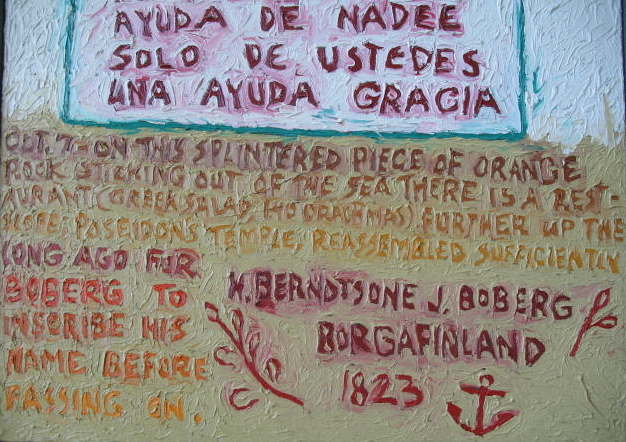 AYUDA DE NADEE
SOLO DE USTEDES
UNA AYUDA GRACIA
OCT. 7- ON THIS SPLINTERED PIECE OF ORANGE
ROCK STICKING OUT OF THE SEA THERE IS A REST-
AURANT (GREEK SALAD, 140 DRACHMAS) FURTHER UP THE
SLOPE: POSEIDONS TEMPLE, REASSEMBLED SUFFICIENTLY
LONG AGO FOR
BOBERG TO
INSCRIBE HIS
NAME BEFORE
PASSING ON.
BERNDTSONE J. BOBERG
BORGAFINLAND
1823